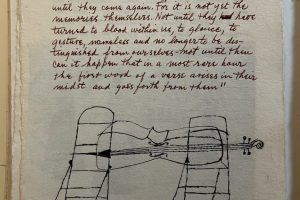 until they come again. For it is not yet the
memories themselves. Not until they have
turned to blood within us, to glance, to
gesture, nameless and no longer to be dis-
tinguished from ourselves–not until then
can it happen that in a most rare hour
the first word of a verse arises in their
midst and goes forth from them"